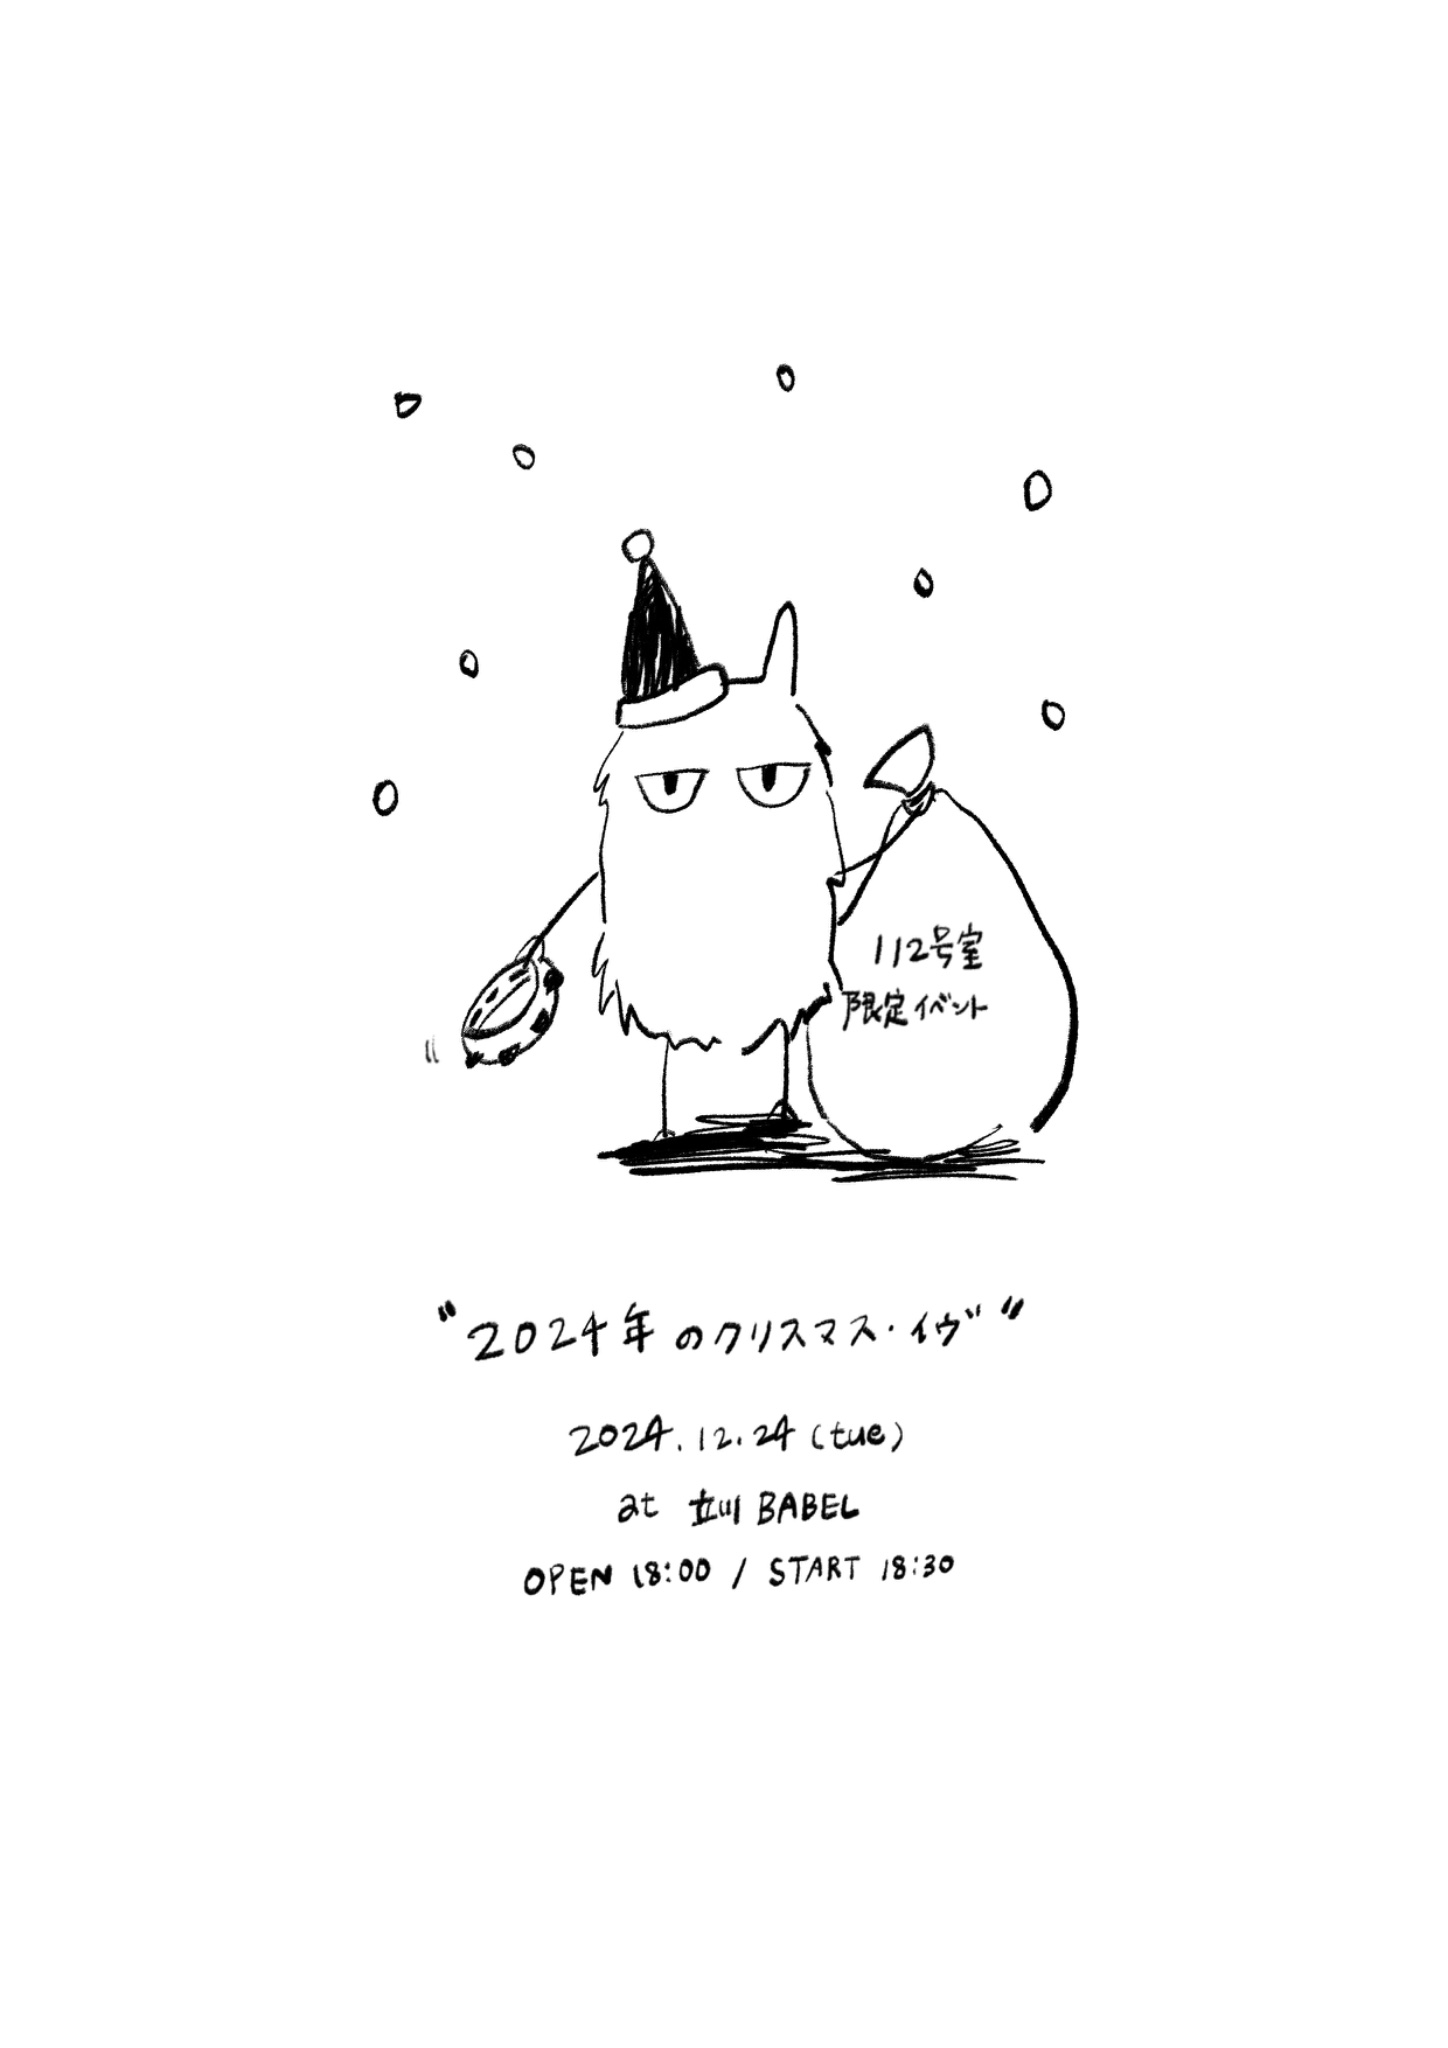 112号室
限定イベント
"2024年のクリスマス・イヴ"
2024.12.24(tue)
at 立川BABEL
OPEN 18:00 / START 18:30